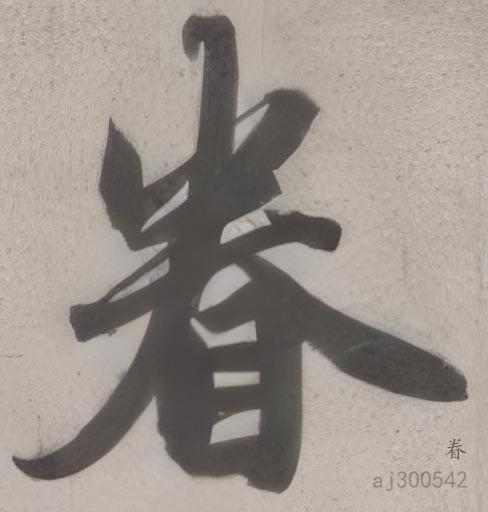 眷
眷
aj300542